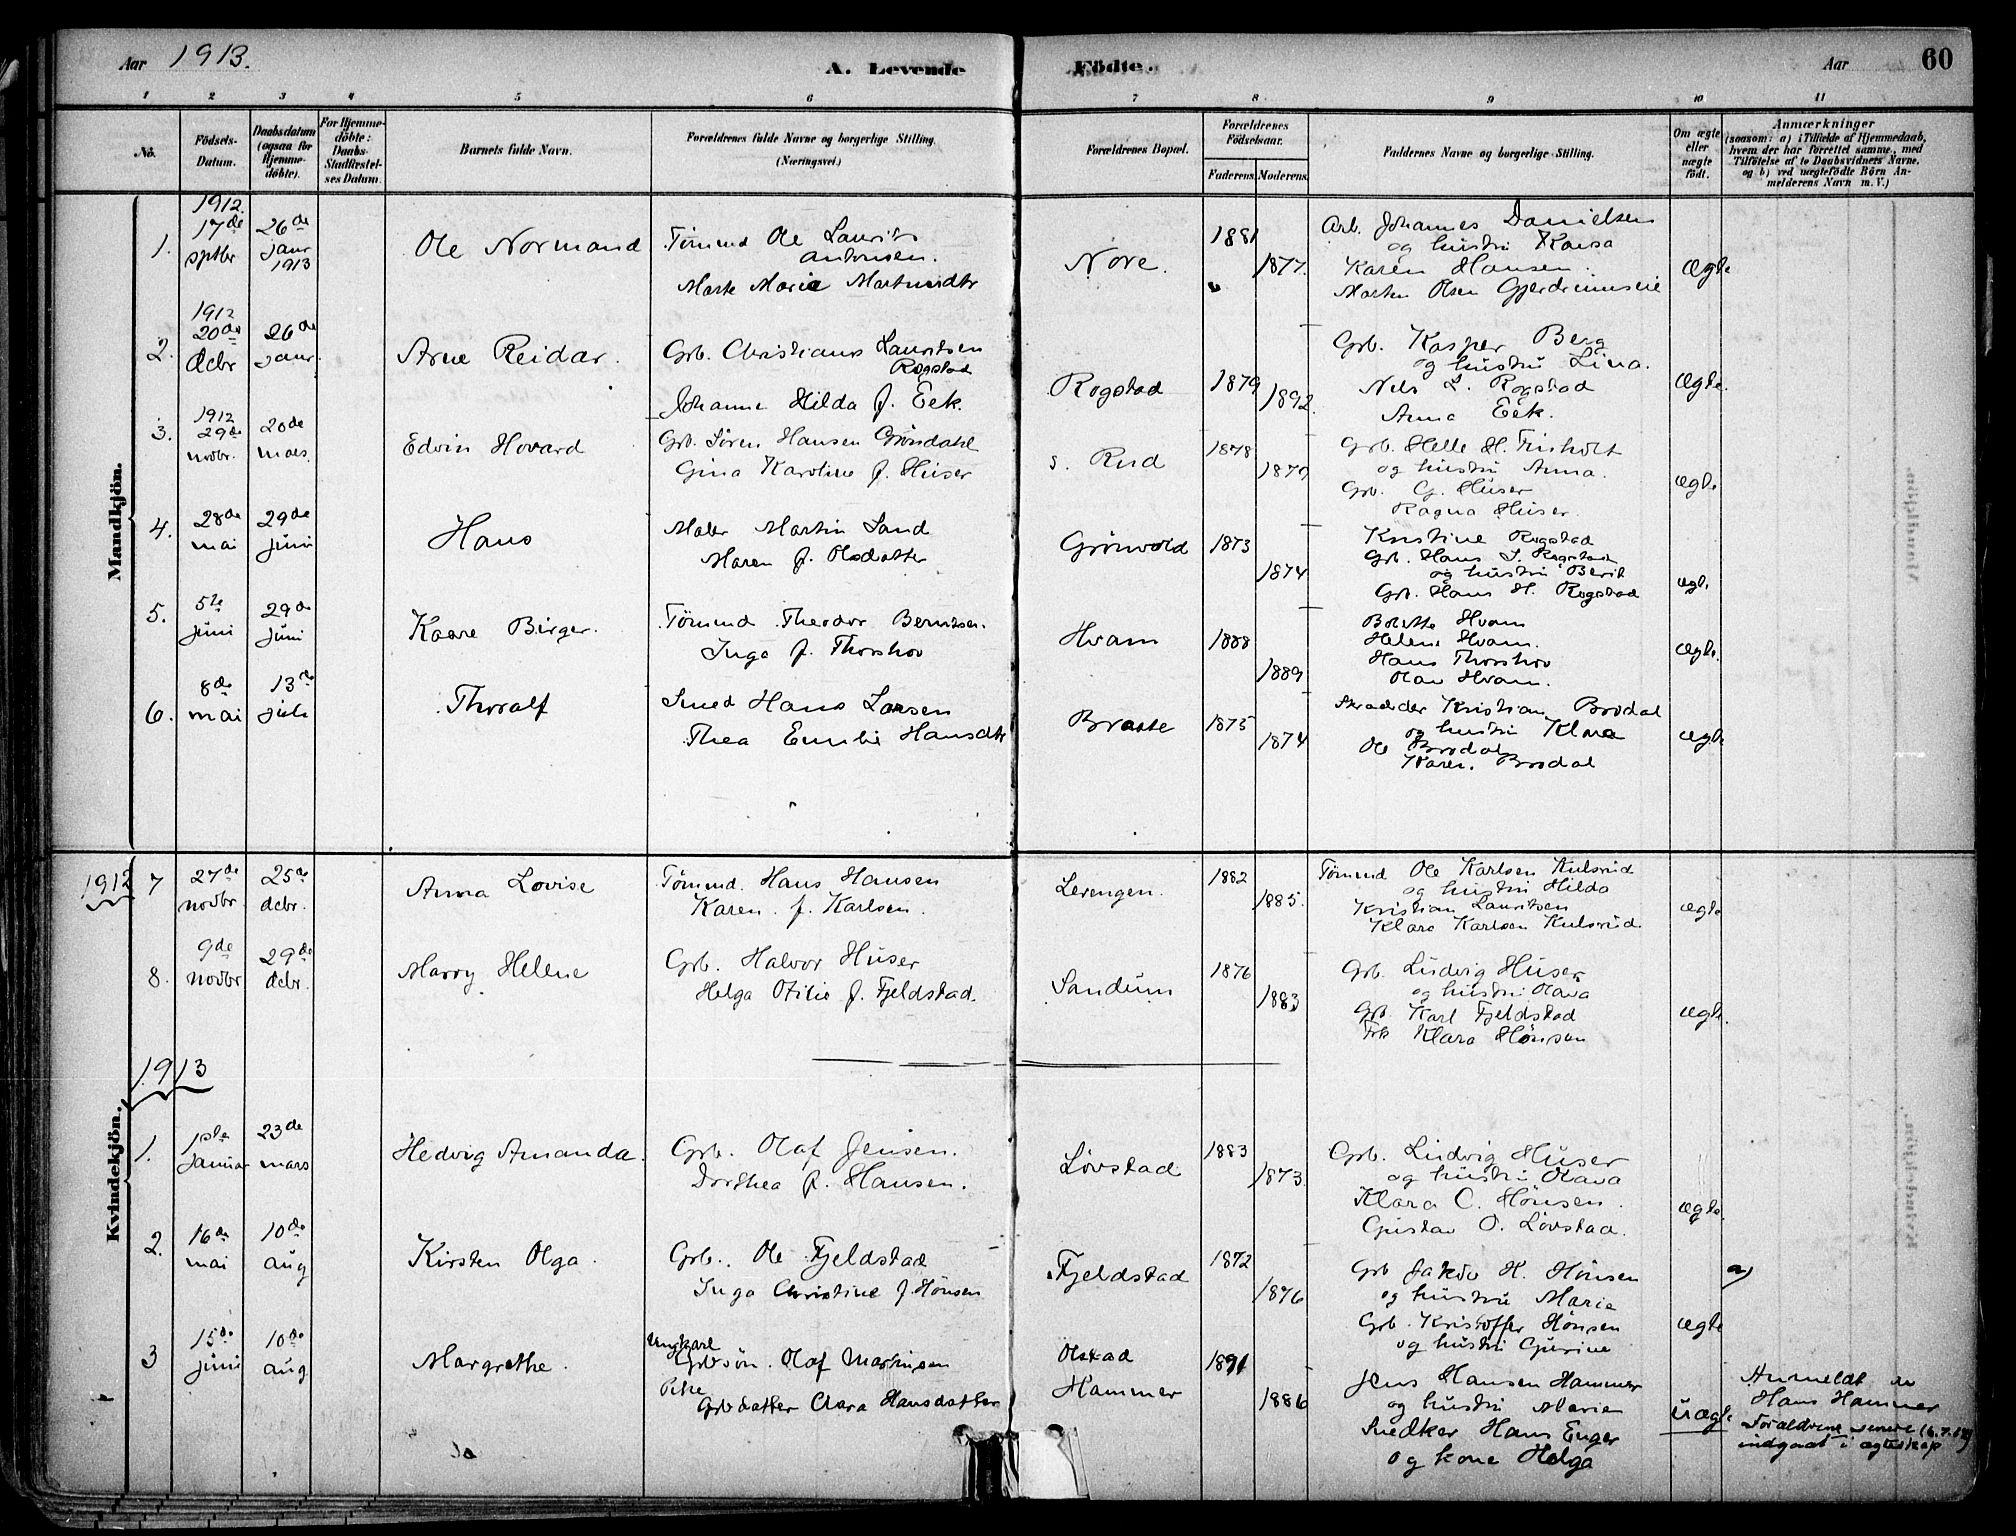 Aar 1913.
A. Levende Födte.
Aar
60
1 2 3 4 5 6 7 8 9 10 11
No.
Födsels-
Datum.
Daabsdatum
(ogsaa for
Hjemme-
döbte).
For Hjemme-
döbte:
Daabs-
Stadfæstel-
ses Datum.
Barnets fulde Navn.
Forældrenes fulde Navne og borgerlige Stilling.
(Næringsvei.)
Forældrenes Bopæl.
Forældrenes
Födselsaar.
Faderens. Moderens.
Faddernes Navne og borgerlige Stilling.
Om ægte
eller
uægte
födt.
Anmærkninger
(saasom: a) i Tilfælde af Hjemmedaab,
hvem der har forrettet samme, med
Tilföielse af to Daabsvidners Navne,
og b) ved uægtefödte Börn An-
melderens Navn m. V.)
Mandkjön.
1. 1912. 17de sptbr 26de Janr 1913 Ole Normand
Tømmd Ole Laurits
Antonsen.
Marte Marie Martinsdtr
Nore. 1881 1877.
Arb. Johannes Danielsen
og hustru Kaisa
Karen Hansen.
Martin Olsen Gjerdrumseie
Ægte
2. 1912 20de dcbr 26de Janr. Arne Reidar.
Grb. Christians Lauritsen
Rogstad
Johanne Hilda f. Eek.
Rogstad 1879 1892.
Grb. Kasper Berg
og hustru Lina.
Nels L. Rogstad
Anna Eek.
Ægte.
3. 1912 29de novbr. 20de mars. Edvin Hovard
Grb. Søren Hansen Grøndahl
Gina Karoline f. Huser
s. Rud 1878 1879
Grb. Helle H. Finholt
og hustru Anna.
Grb. G. Huser
Ragna Huser.
Ægte
4. 28de mai 29de juni Hans
Maler Martin Sand
Maren f. Olsdatter
Grønvold 1873 1874
Kristine Rogstad
Grb. Hans L. Rogstad
og hustru Berit
Grb. Hans H. Rogstad
ægte
5. 5te juni 29de juni Kaare Birger.
Tømmd. Theodor Berntsen.
Inga f. Thorshov
Hvam 1888 1889
Bolette Hvam
Helene Hvam.
Hans Thorshov
Olav Hvam.
ægte.
6. 8de mai 13de juli Thoralf
Smed Hans Larsen
Thea Emilie Hansdtr
Braate 1875 1874
Skrædder Kristian Brodal
og hustru Klara
Ole Brodal
Karen. Brodal
ægte
Kvindekjön.
1912
7 27de novbr 25de dcbr. Anna Lovise
Tømmd. Hans Hansen
Karen. f. Karlsen.
Lerengen. 1882 1885.
Tømmd Ole Karlsen Kulsrud
og hustru Hilda
Kristian Lauritsen
Klara Karlsen Kulsrud
ægte
8. 9de novbr 29de dcbr. Marry Helene
Grb. Halvor Huser
Helga Otilie f. Fjeldstad.
Sandum 1876 1883
Grb. Ludvig Huser
og hustru Olava
Grb. Karl Fjeldstad
Frk Klara Hønsen
ægte.
1913
1. 1ste Januar 23de mars Hedvig Amanda.
Grb. Olaf Jensen.
Dorthea f. Hansen.
Løvstad 1883 1873.
Grb. Ludvig Huser
og hustru Olava
Klara C. Hønsen.
Gustav O. Løvstad.
ægte.
2. 16de mai 10de aug Kirsten Olga.
Grb. Ole Fjeldstad
Inga Christine f. Hønsen
Fjeldstad 1872 1876
Grb Jakob H. Hønsen
og hustru Marie
Grb. Kristoffer Hønsen
og hustru Gurine
ægte
a)
3 15de juni 10de aug Margrethe.
Ungkarl
Grbsøn. Olaf Martinsen
Pike
Grbdatter Clara Hansdatter
Olstad
Hammer
1891 1886
Jens Hansen Hammer
og hustru Marie
Snedker Hans Enger
og kone Helga
uægte
Anmeldt av
Hans Hammer
Foraldrene senere
indgaat i ægteskap